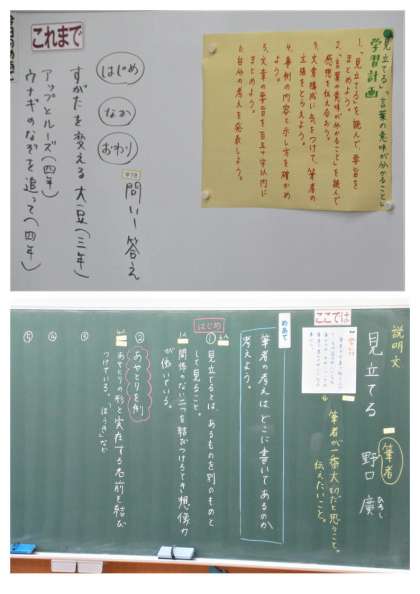 「見立てる」「言葉の意味が分かること」
学習計画
1、「見立てる」を読んで、要旨を
まとめよう。
2、「言葉の意味が分かること」を読んで
感想を伝え合おう。
3、文章構成に気をつけて、筆者の
主張をとらえよう。
4、事例の内容と示し方を確かめ
まとめよう。
5、文章の要旨を百五十字以内に
まとめよう。
6、自分の考えを発表しよう。
これまで
はじめ
なか
おわり
問い―答え
すがたを変える大豆(三年)
アップとルーズ(四年)
ウナギのなぞを追って(四年)
説明文
見立てる
筆者
野口 廣
ひろし
ここでは
筆者が一番大切だと思うこと。
伝えたいこと。
めあて
筆者の考えはどこに書いてあるのか
考えよう。
はじめ
① 見立てるとは、あるものを別のものと
して見ること。
関係のない二つを結びつけるとき想像力
が働いている。
② あやとりを例
あやとりの形と実在する名前を結び
つけている。「ほうき」など
③
④
⑤